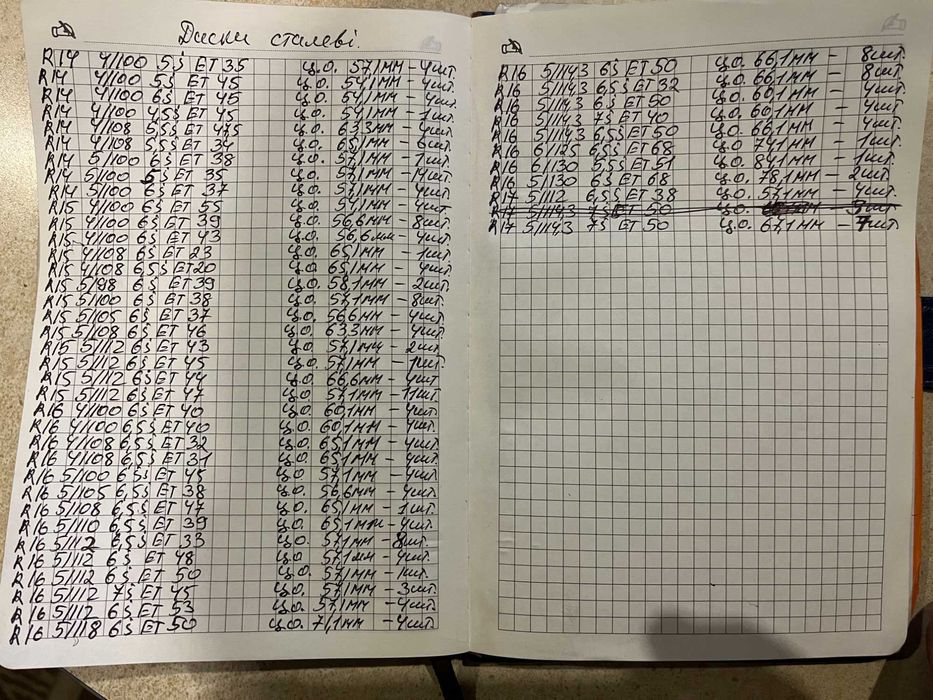 Диски сталеві.
R14 4/100 5j ET 35 ц.о. 57,1 мм - 4шт.
R14 4/100 5,5j ET 45 ц.о. 54,1 мм - 4шт.
R14 4/100 6j ET 45 ц.о. 54,1 мм - 4шт.
R14 4/100 4,5j ET 45 ц.о. 54,1 мм - 1шт.
R14 4/108 5,5j ET 47,5 ц.о. 63,3 мм - 4шт.
R14 4/108 5,5j ET 34 ц.о. 65,1 мм - 6шт.
R14 5/100 6j ET 38 ц.о. 57,1 мм - 1шт.
R14 5/100 5j ET 35 ц.о. 57,1 мм - 14шт.
R14 5/100 6j ET 37 ц.о. 57,1 мм - 4шт.
R15 4/100 6j ET 55 ц.о. 54,1 мм - 4шт
R15 4/100 6j ET 39 ц.о. 56,6 мм - 8шт.
R15 4/100 6j ET 43 ц.о. 56,6 мм - 4шт.
R15 4/108 6j ET 23 ц.о. 65,1 мм - 1шт
R15 4/108 6,5j ET20 ц.о. 65,1 мм - 4шт.
R15 5/98 6j ET 39 ц.о. 58,1 мм - 2шт.
R15 5/100 6j ET 38 ц.о. 57,1 мм - 8шт.
R15 5/105 6j ET 37 ц.о. 56,6 мм - 4шт
R15 5/108 6j ET 46 ц.о. 63,3 мм - 4шт.
R15 5/112 6j ET 43 ц.о. 57,1 мм - 2шт.
R15 5/112 6j ET 45 ц.о. 57,1 мм - шт.
R15 5/112 6j ET 44 ц.о. 66,6 мм - 4шт
R15 5/112 6j ET 47 ц.о. 57,1 мм - 11шт.
R16 4/100 6j ET 40 ц.о. 60,1 мм - 4шт.
R16 4/100 6,5j ET 40 ц.о. 60,1 мм - 4шт.
R16 4/108 6,5j ET 32 ц.о. 65,1 мм - 4шт.
R16 4/108 6,5j ET 31 ц.о. 65,1 мм - 4шт.
R16 5/100 6,5j ET 45 ц.о. 57,1 мм - 4шт.
R16 5/105 6,5j ET 38 ц.о. 56,6 мм - 4шт.
R16 5/108 6,5j ET 47 ц.о. 65,1 мм - 1шт.
R16 5/110 6,5j ET 39 ц.о. 65,1 мм - 4шт.
R16 5/112 6,5j ET 33 ц.о. 57,1 мм - 8шт.
R16 5/112 6j ET 48 ц.о. 57,1 мм - 4шт.
R16 5/112 6j ET 50 ц.о. 57,1 мм - 1шт.
R16 5/112 7j ET 45 ц.о. 57,1 мм - 3шт.
R16 5/112 6j ET 53 ц.о. 57,1 мм - 4шт.
R16 5/118 6j ET 50 ц.о. 71,1 мм - 4шт
R16 5/114,3 6j ET 50 ц.о. 66,1 мм - 8шт.
R16 5/114,3 6,5j ET 32 ц.о. 66,1 мм - 8шт.
R16 5/114,3 6j ET 50 ц.о. 60,1 мм - 4шт.
R16 5/114,3 7j ET 40 ц.о. 60,1 мм - 4шт.
R16 5/114,3 6,5j ET 50 ц.о. 66,1 мм - 4шт.
R16 6/ 6,5j ET 68 ц.о. 74,1 мм - 1шт.
R16 6/130 5,5j ET 51 ц.о. 84,1 мм - 1шт.
R16 5/130 6j ET 68 ц.о. 78,1 мм - 2шт
R17 5/112 6,5j ET 38 ц.о. 57,1 мм - 4шт.
R17 5/114,3 7j ET 50 ц.о. мм - шт
R17 5/114,3 7j ET 50 ц.о. 67,1 мм - 7шт